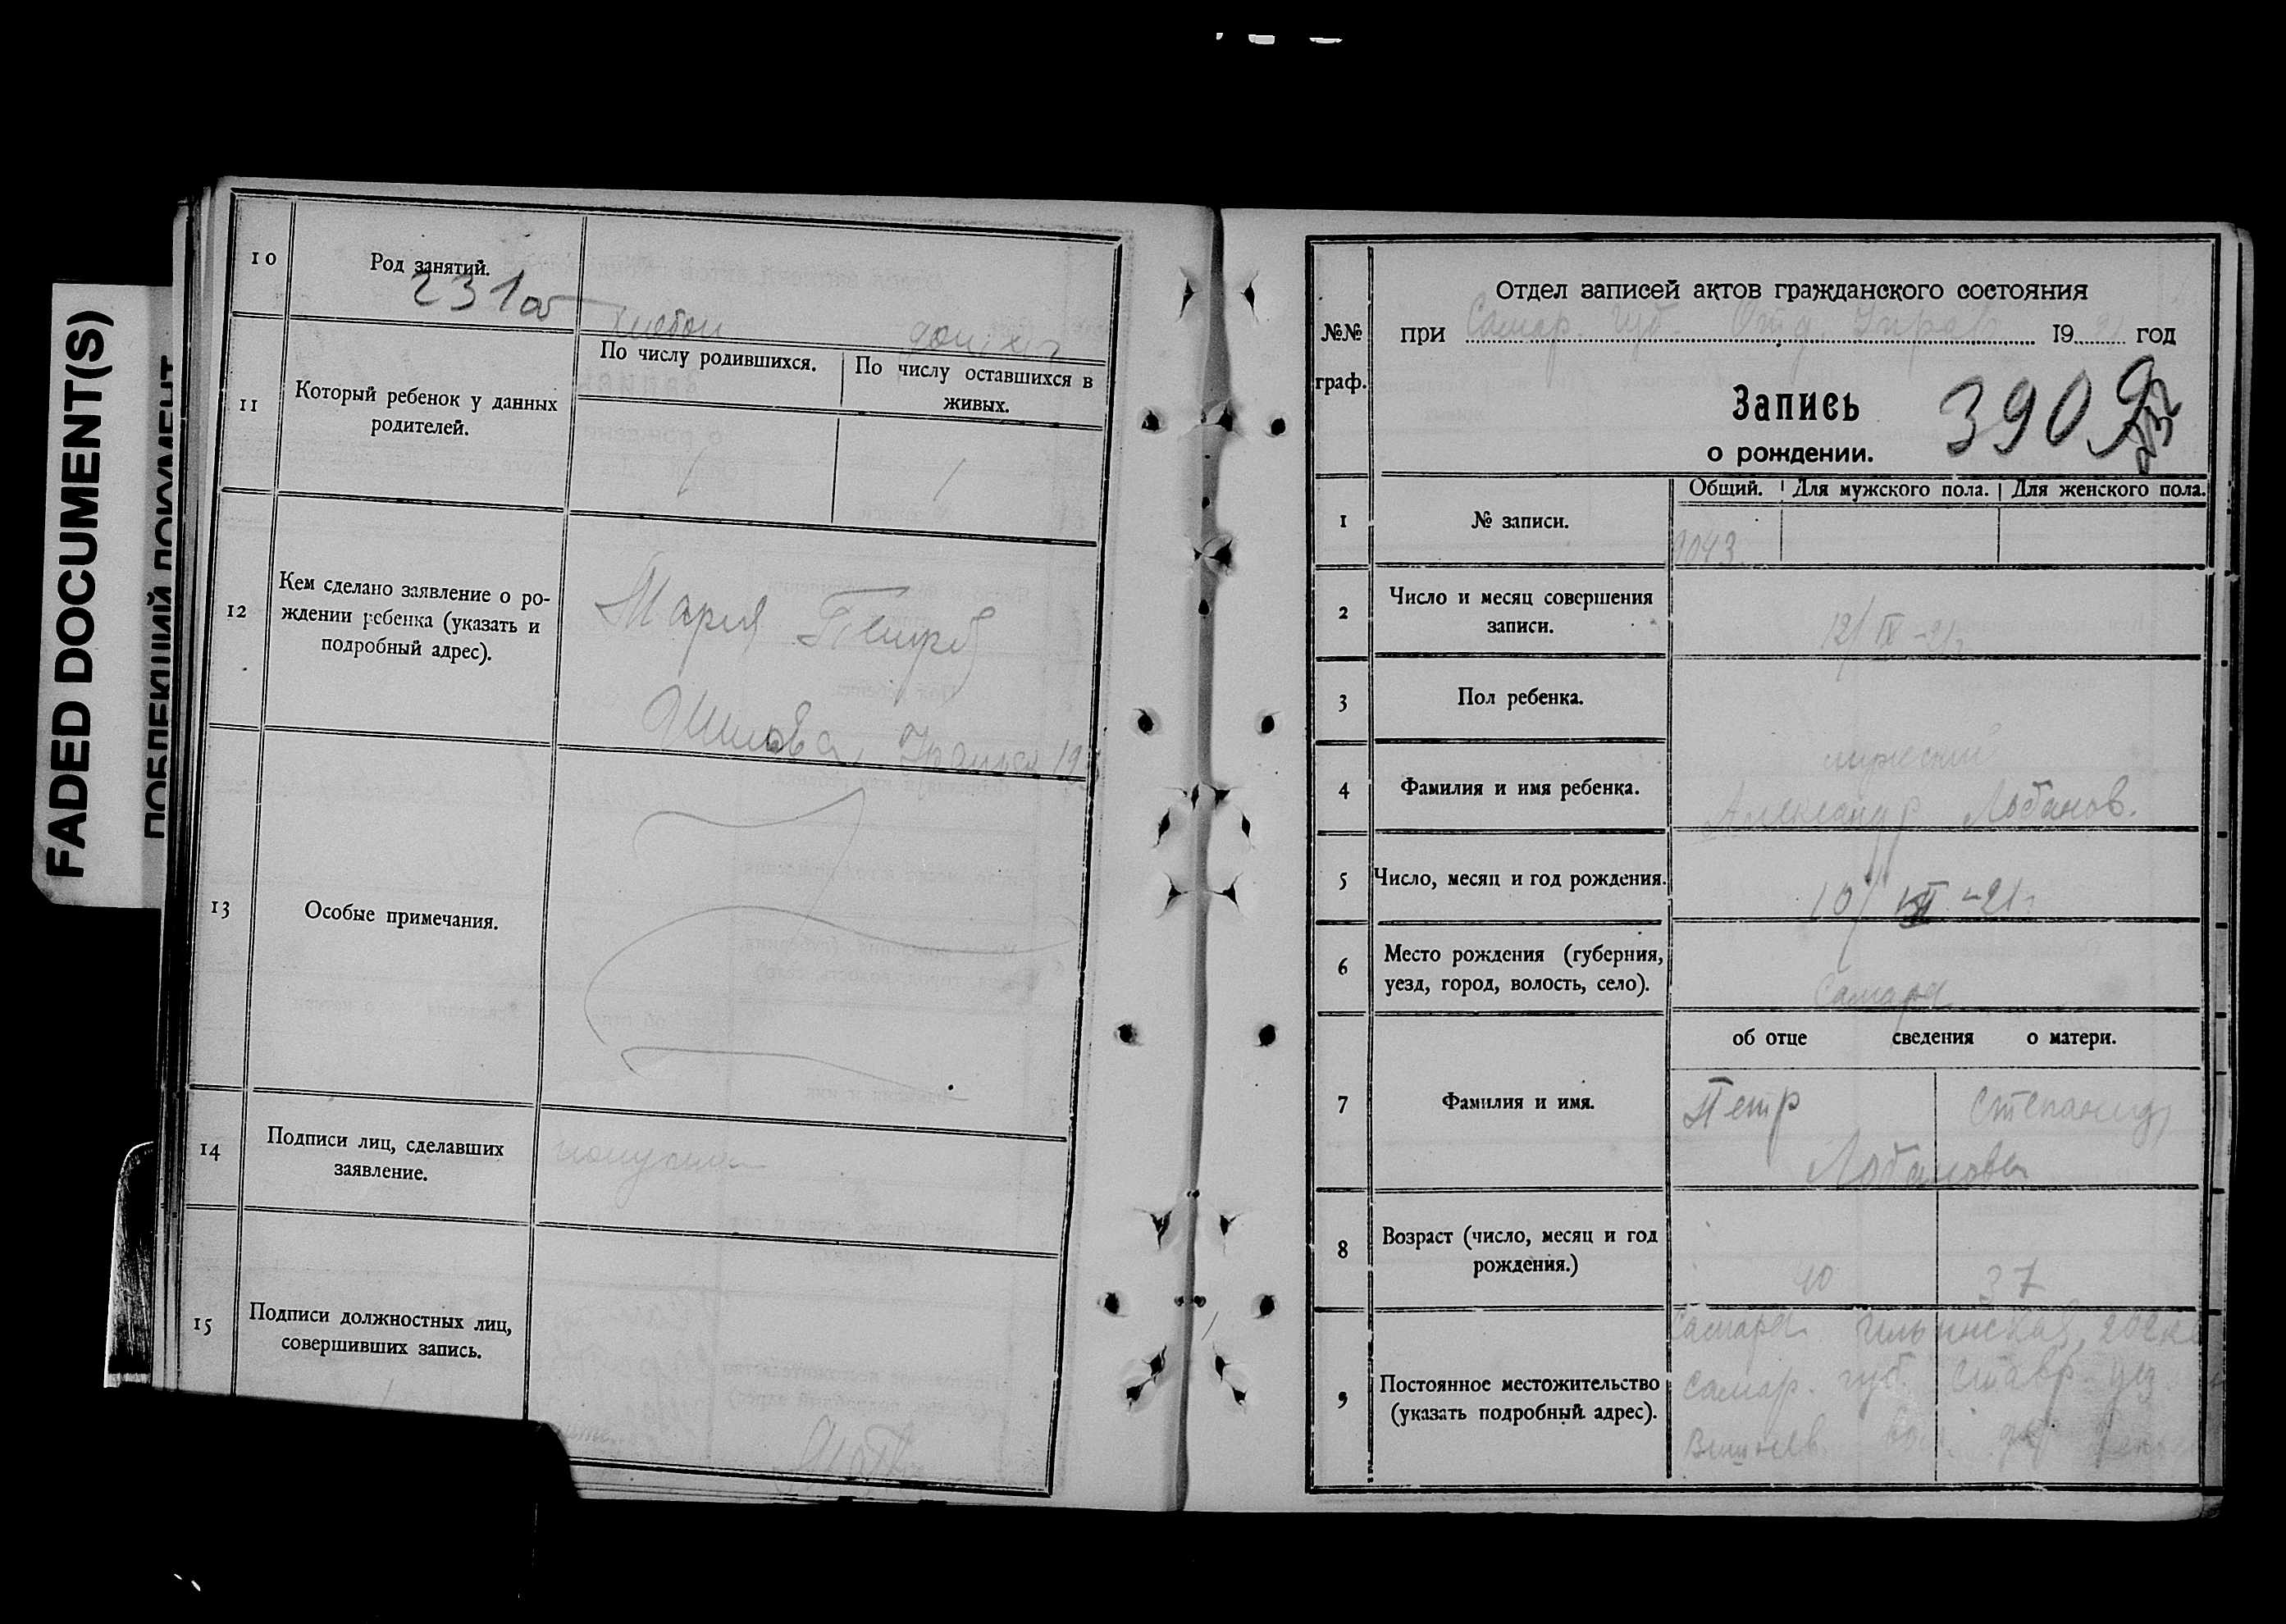 FADED DOCUMENT(S)
ПОБЛЕКШИЙ ДОКУМЕНТ
10
Род занятий.
231об
11
Который ребенок у данных
родителей.
По числу родившихся.
По числу оставшихся в
живых.
1
1
12
Кем сделано заявление о ро-
ждении ребенка (указать и
подробный адрес).
Мария
13
Особые примечания.
14
Подписи лиц, сделавших
заявление.
15
Подписи должностных лиц,
совершивших запись.
№№
граф.
Отдел записей актов гражданского состояния
при Самар. Губ. Отд. Управ 1921 год
Запись
о рождении.
390
232
Общий. Для мужского пола. Для женского пола.
1
№ записи.
1043
2
Число и месяц совершения
записи.
12/IX-21г
3
Пол ребенка.
мужеский
4
Фамилия и имя ребенка.
Александр Лобанов.
5
Число, месяц и год рождения.
10/ -21г
6
Место рождения (губерния,
уезд, город, волость, село).
Самара
об отце сведения о матери.
7
Фамилия и имя.
Петр Степанида
Лобановы
8
Возраст (число, месяц и год
рождения.)
40 37
9
Постоянное местожительство
(указать подробный адрес).
Самара Ильинская,
Самар. губ. Ставр. уез